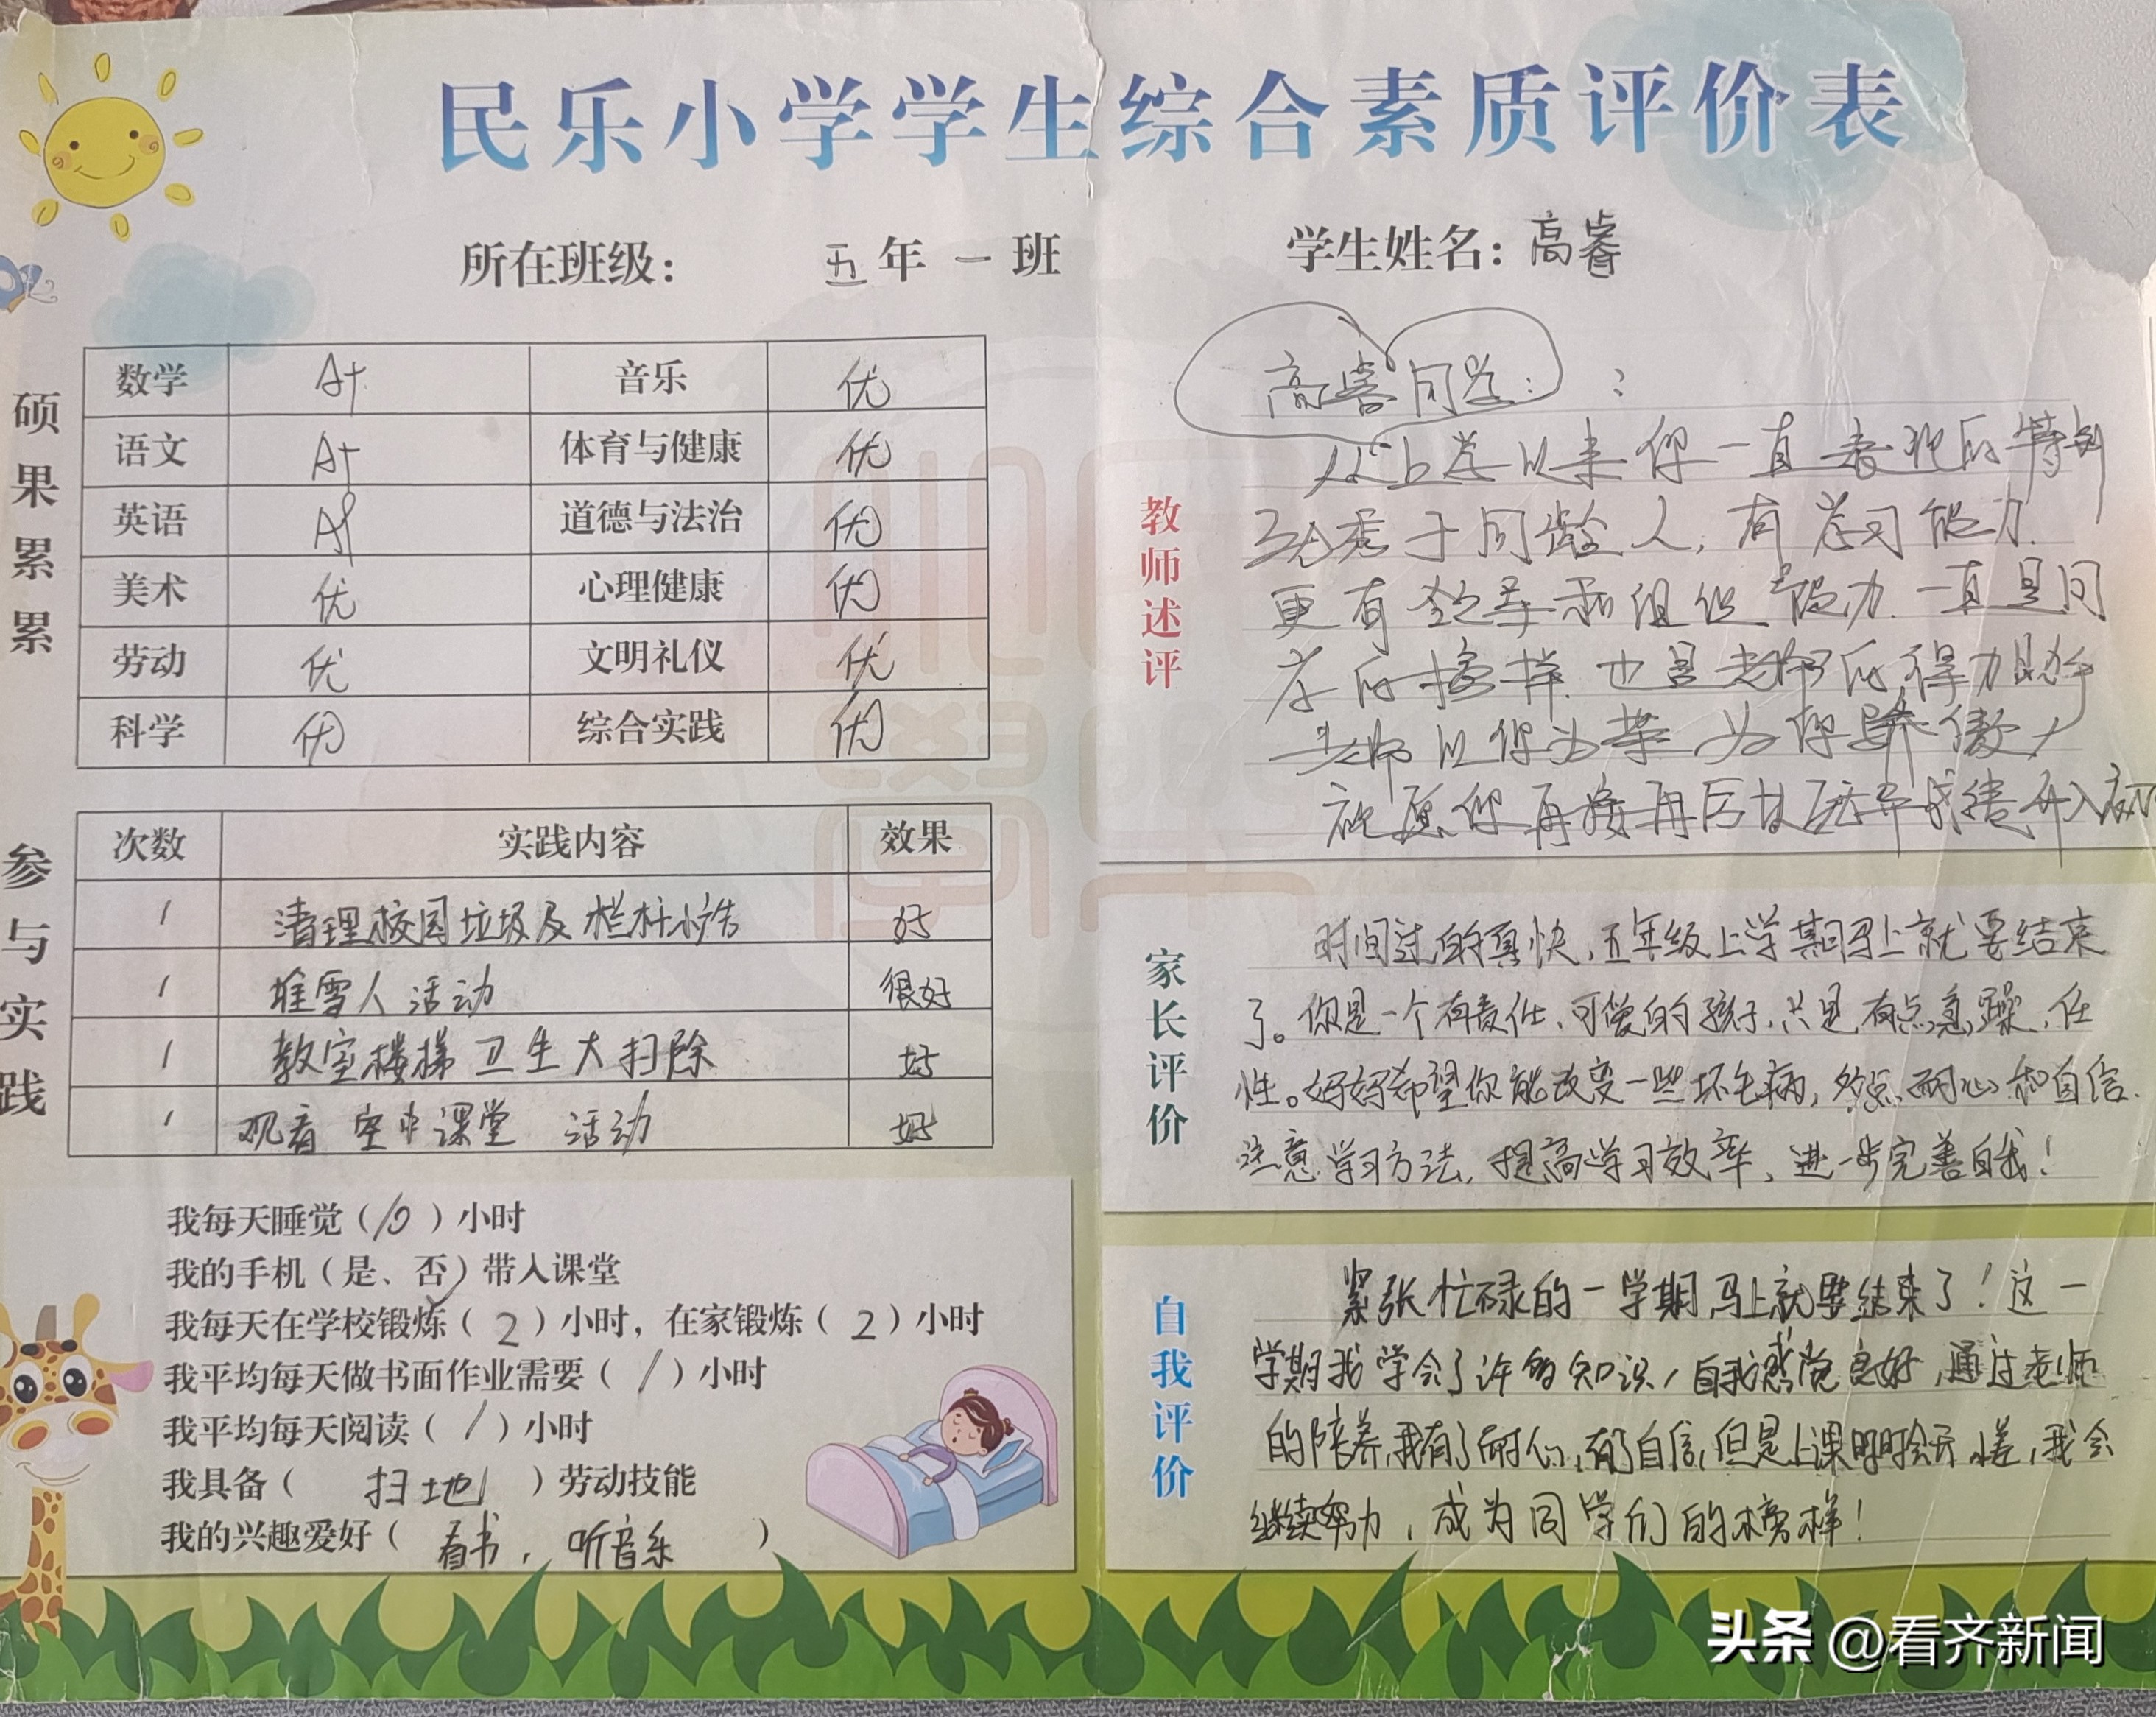 民乐小学学生综合素质评价表
所在班级： 五年一班
学生姓名：高睿
硕果累累
数学 A+ 音乐 优
语文 A+ 体育与健康 优
英语 A+ 道德与法治 优
美术 优 心理健康 优
劳动 优 文明礼仪 优
科学 优 综合实践 优
参与实践
次数 实践内容 效果
1 清理校园垃圾及栏杆小广告 好
1 堆雪人活动 很好
1 教室楼梯卫生大扫除 好
1 观看空中课堂 活动 好
我每天睡觉（10）小时
我的手机（是、否√）带入课堂
我每天在学校锻炼（2）小时，在家锻炼（2）小时
我平均每天做书面作业需要（1）小时
我平均每天阅读（1）小时
我具备（扫地）劳动技能
我的兴趣爱好（看书，听音乐）
教师述评
高睿同学：
从上学以来你一直表现的特别
优秀于同龄人，有学习能力
更有领导和组织能力.一直是同
学的榜样.也是老师的得力助手
老师以你为荣 为你骄傲！
祝愿你再接再厉
家长评价
时间过的真快，五年级上学期马上就要结束
了。你是一个有责任、可爱的孩子，只是有点急躁、任
性。好好希望你能改变一些坏毛病，多点耐心和自信.
注意学习方法，提高学习效率，进一步完善自我！
自我评价
紧张忙碌的一学期马上就要结束了！这一
学期我学会了许多知识，自我感觉良好，通过老师
的陪养，我有了耐心，有了自信，但是上课时会开小差，我会
继续努力，成为同学们的榜样！
头条 @看齐新闻